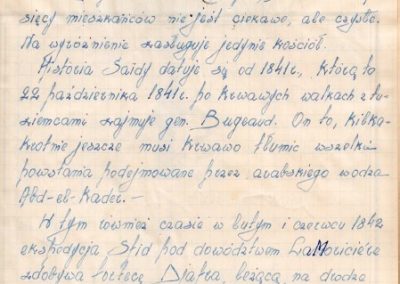 sięcy mieszkańców nie jest ciekawe, ale czyste.
Na wyróżnienie zasługuje jedynie kościół.
Historia Saidy datuje się od 1841r., którą to
22 października 1841r. po krwawych walkach z tu-
ziemcami zajmuje gen. Bugeaud. On to, kilka-
krotnie jeszcze musi krwawo tłumić wszelkie
powstania podejmowane przez arabskiego wodza
Abd-el-Kader. -
W tym również czasie w lutym i czerwcu 1842
ekspedycja Sfid pod dowództwem LaMoriciére
zdobywa fortecę Diafra, leżącą na drodze